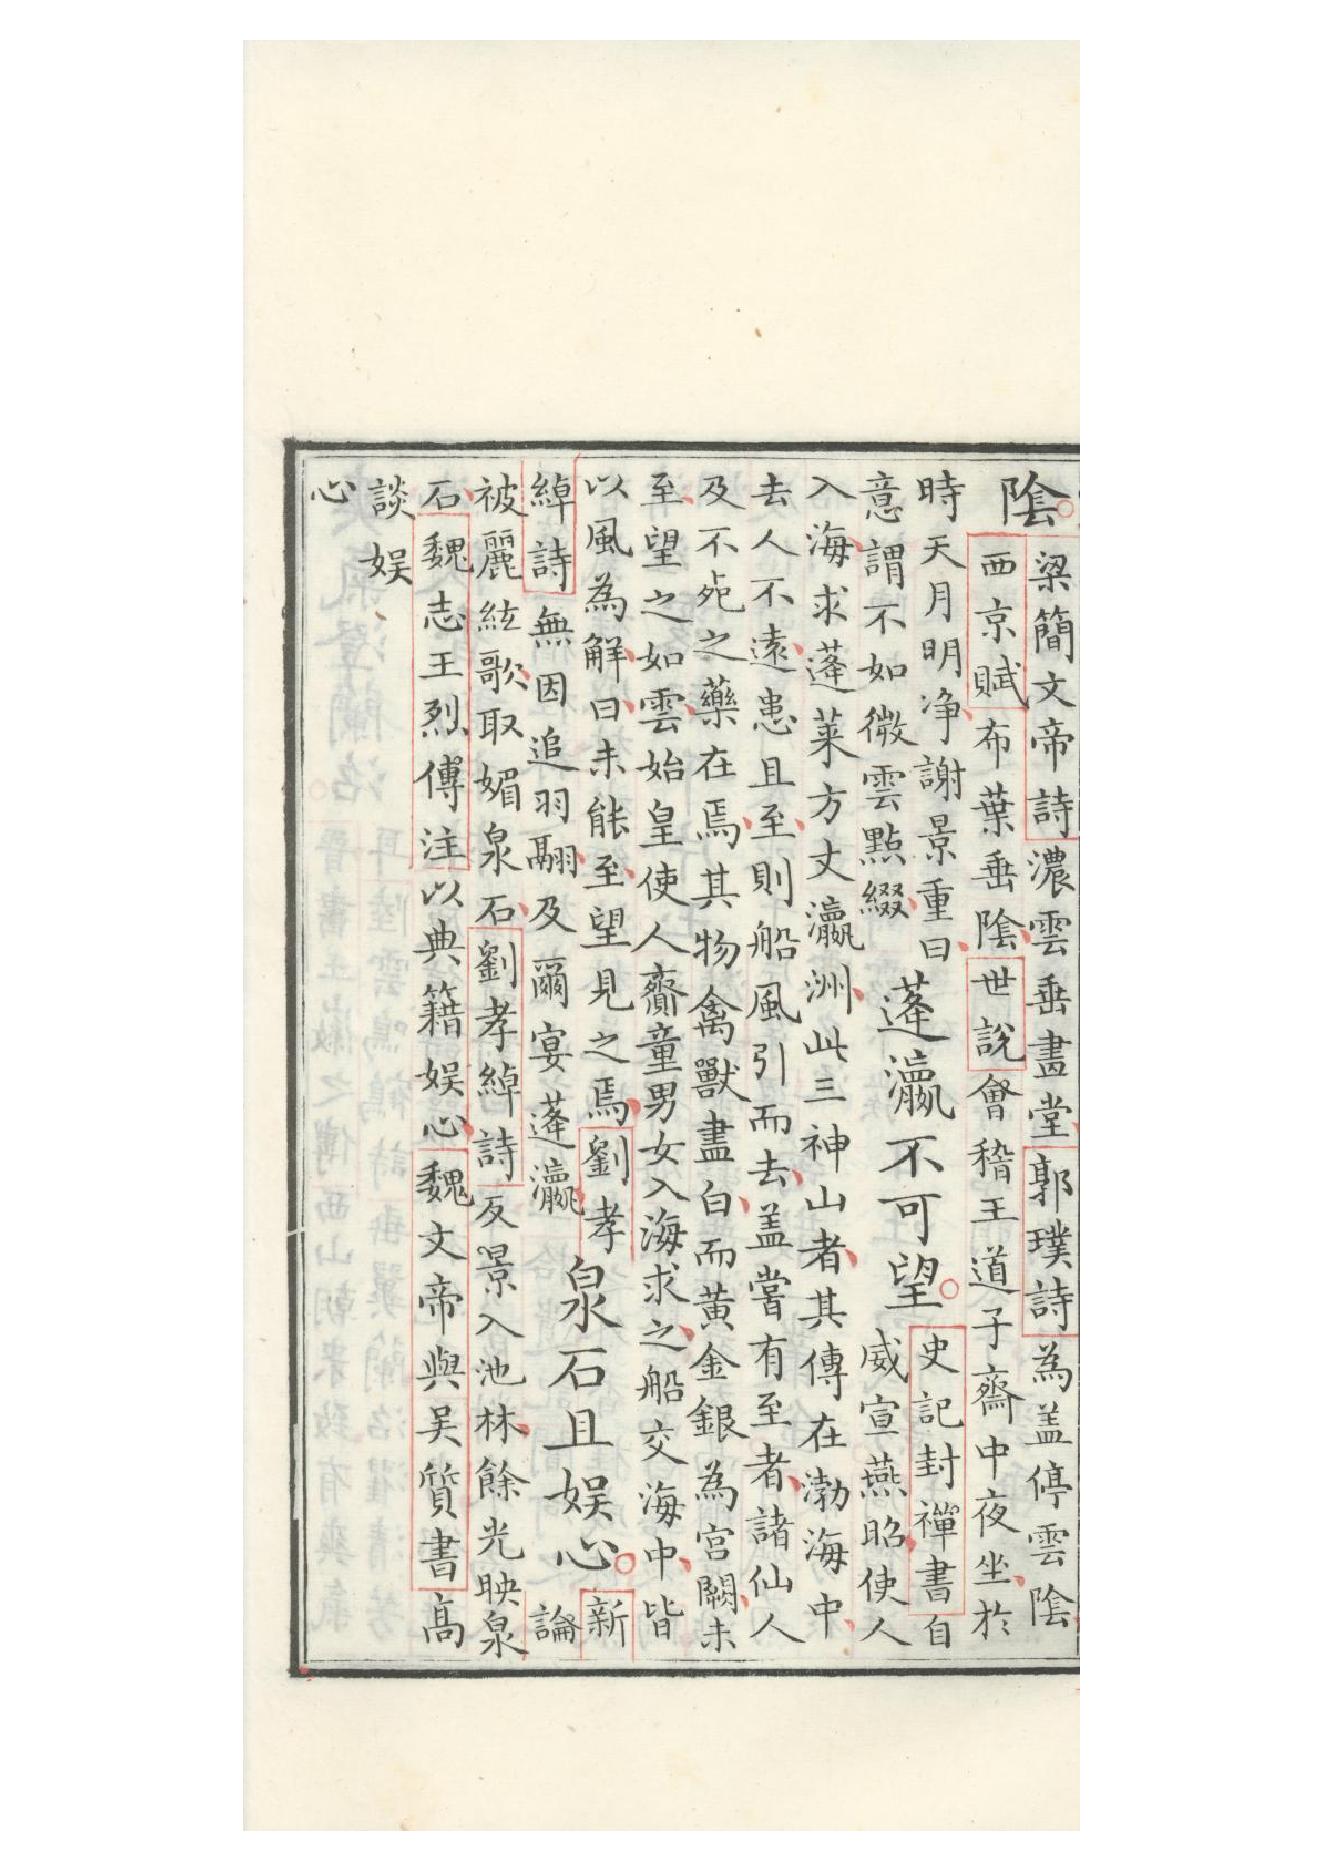 陰
梁簡文帝詩濃雲垂畫堂郭璞詩為盖停雲陰
西京賦布葉垂陰世說會稽王道子齋中夜坐於
時天月明净謝景重曰
意謂不如微雲點綴
蓬瀛不可望
史記封禪書自
威宣燕昭使人
入海求蓬莱方丈瀛洲此三神山者其傳在渤海中
去人不遠患且至則船風引而去盖嘗有至者諸仙人
及不死之藥在焉其物禽獸盡白而黃金銀為宮闕未
至望之如雲始皇使人齎童男女入海求之船交海中皆
以風為解曰未能至望見之焉劉孝
綽詩無因追羽翮及爾宴蓬瀛
泉石且娛心
新
論
被麗絃歌取媚泉石劉孝綽詩反景入池林餘光映泉
石魏志王烈傳注以典籍娛心魏文帝與吴質書高
談娛
心